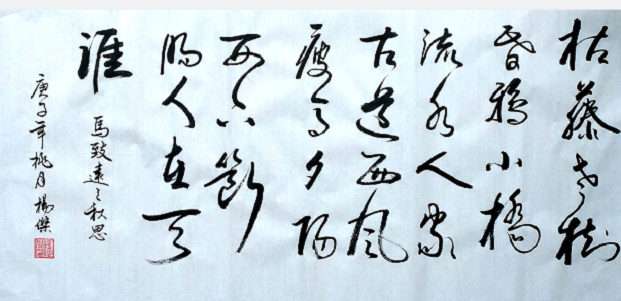 枯藤老樹
昏鴉小橋
流水人家
古道西風
瘦馬夕陽
西下斷
腸人在天
涯
馬致遠之秋思
庚子年桃月楊傑